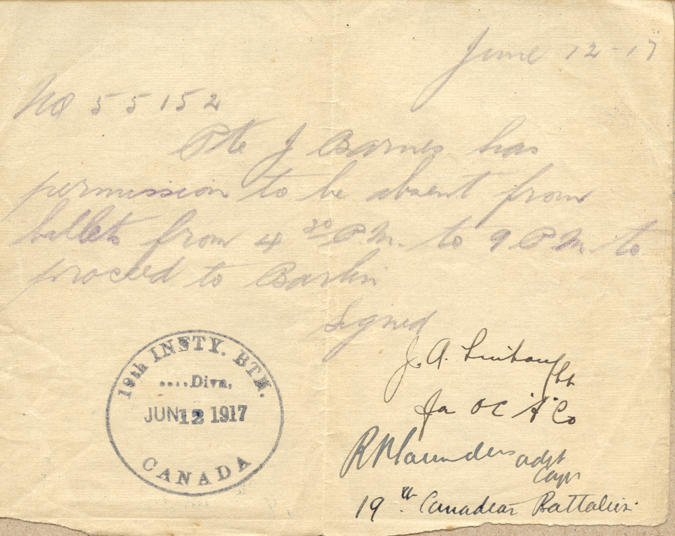 June 12-17
No 55152
Pte J Barnes has
permission to be absent from
billets from 4 30 P.M. to 9 P.M. to
proceed to Barlin
Signed
J. A. Lt
for OC "A" Co
19th INSTY. BTN.
....Divn.
JUN 12 1917
CANADA
adjt
Capt
19th Canadian Battalion